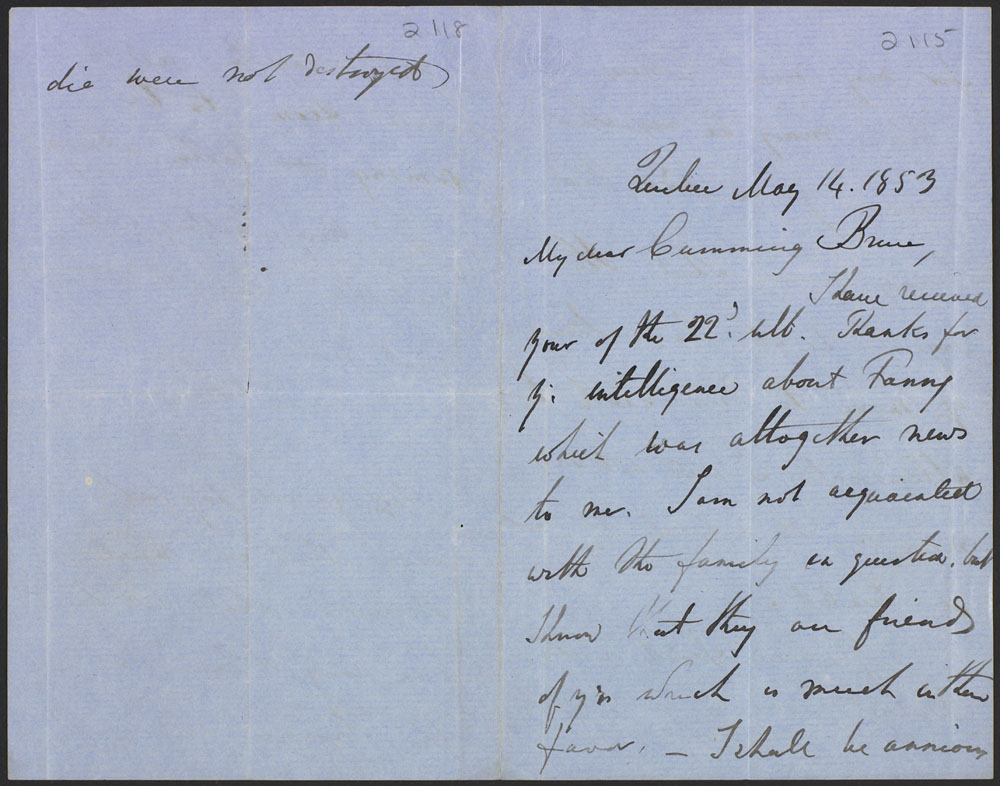 2118
die were not destroyed
2115
Quebec May 14. 1853
My dear Cumming Bruce,
I have received
your of the 22d. ult. Thanks for
yr. intelligence about Fanny
which was altogether news
to me. I am not acquainted
with the family in question, but
I know that they are friends
of yrs which is much in their
favor. — I shall be anxious